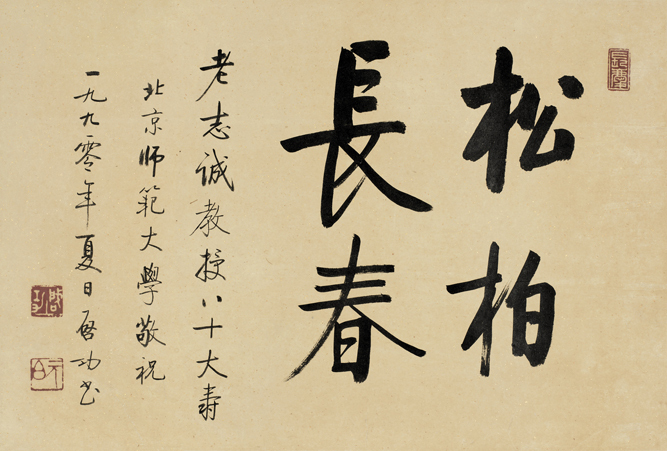 松柏
長春
老志誠教授八十大壽
北京师範大學敬祝
一九九零年夏日启功书